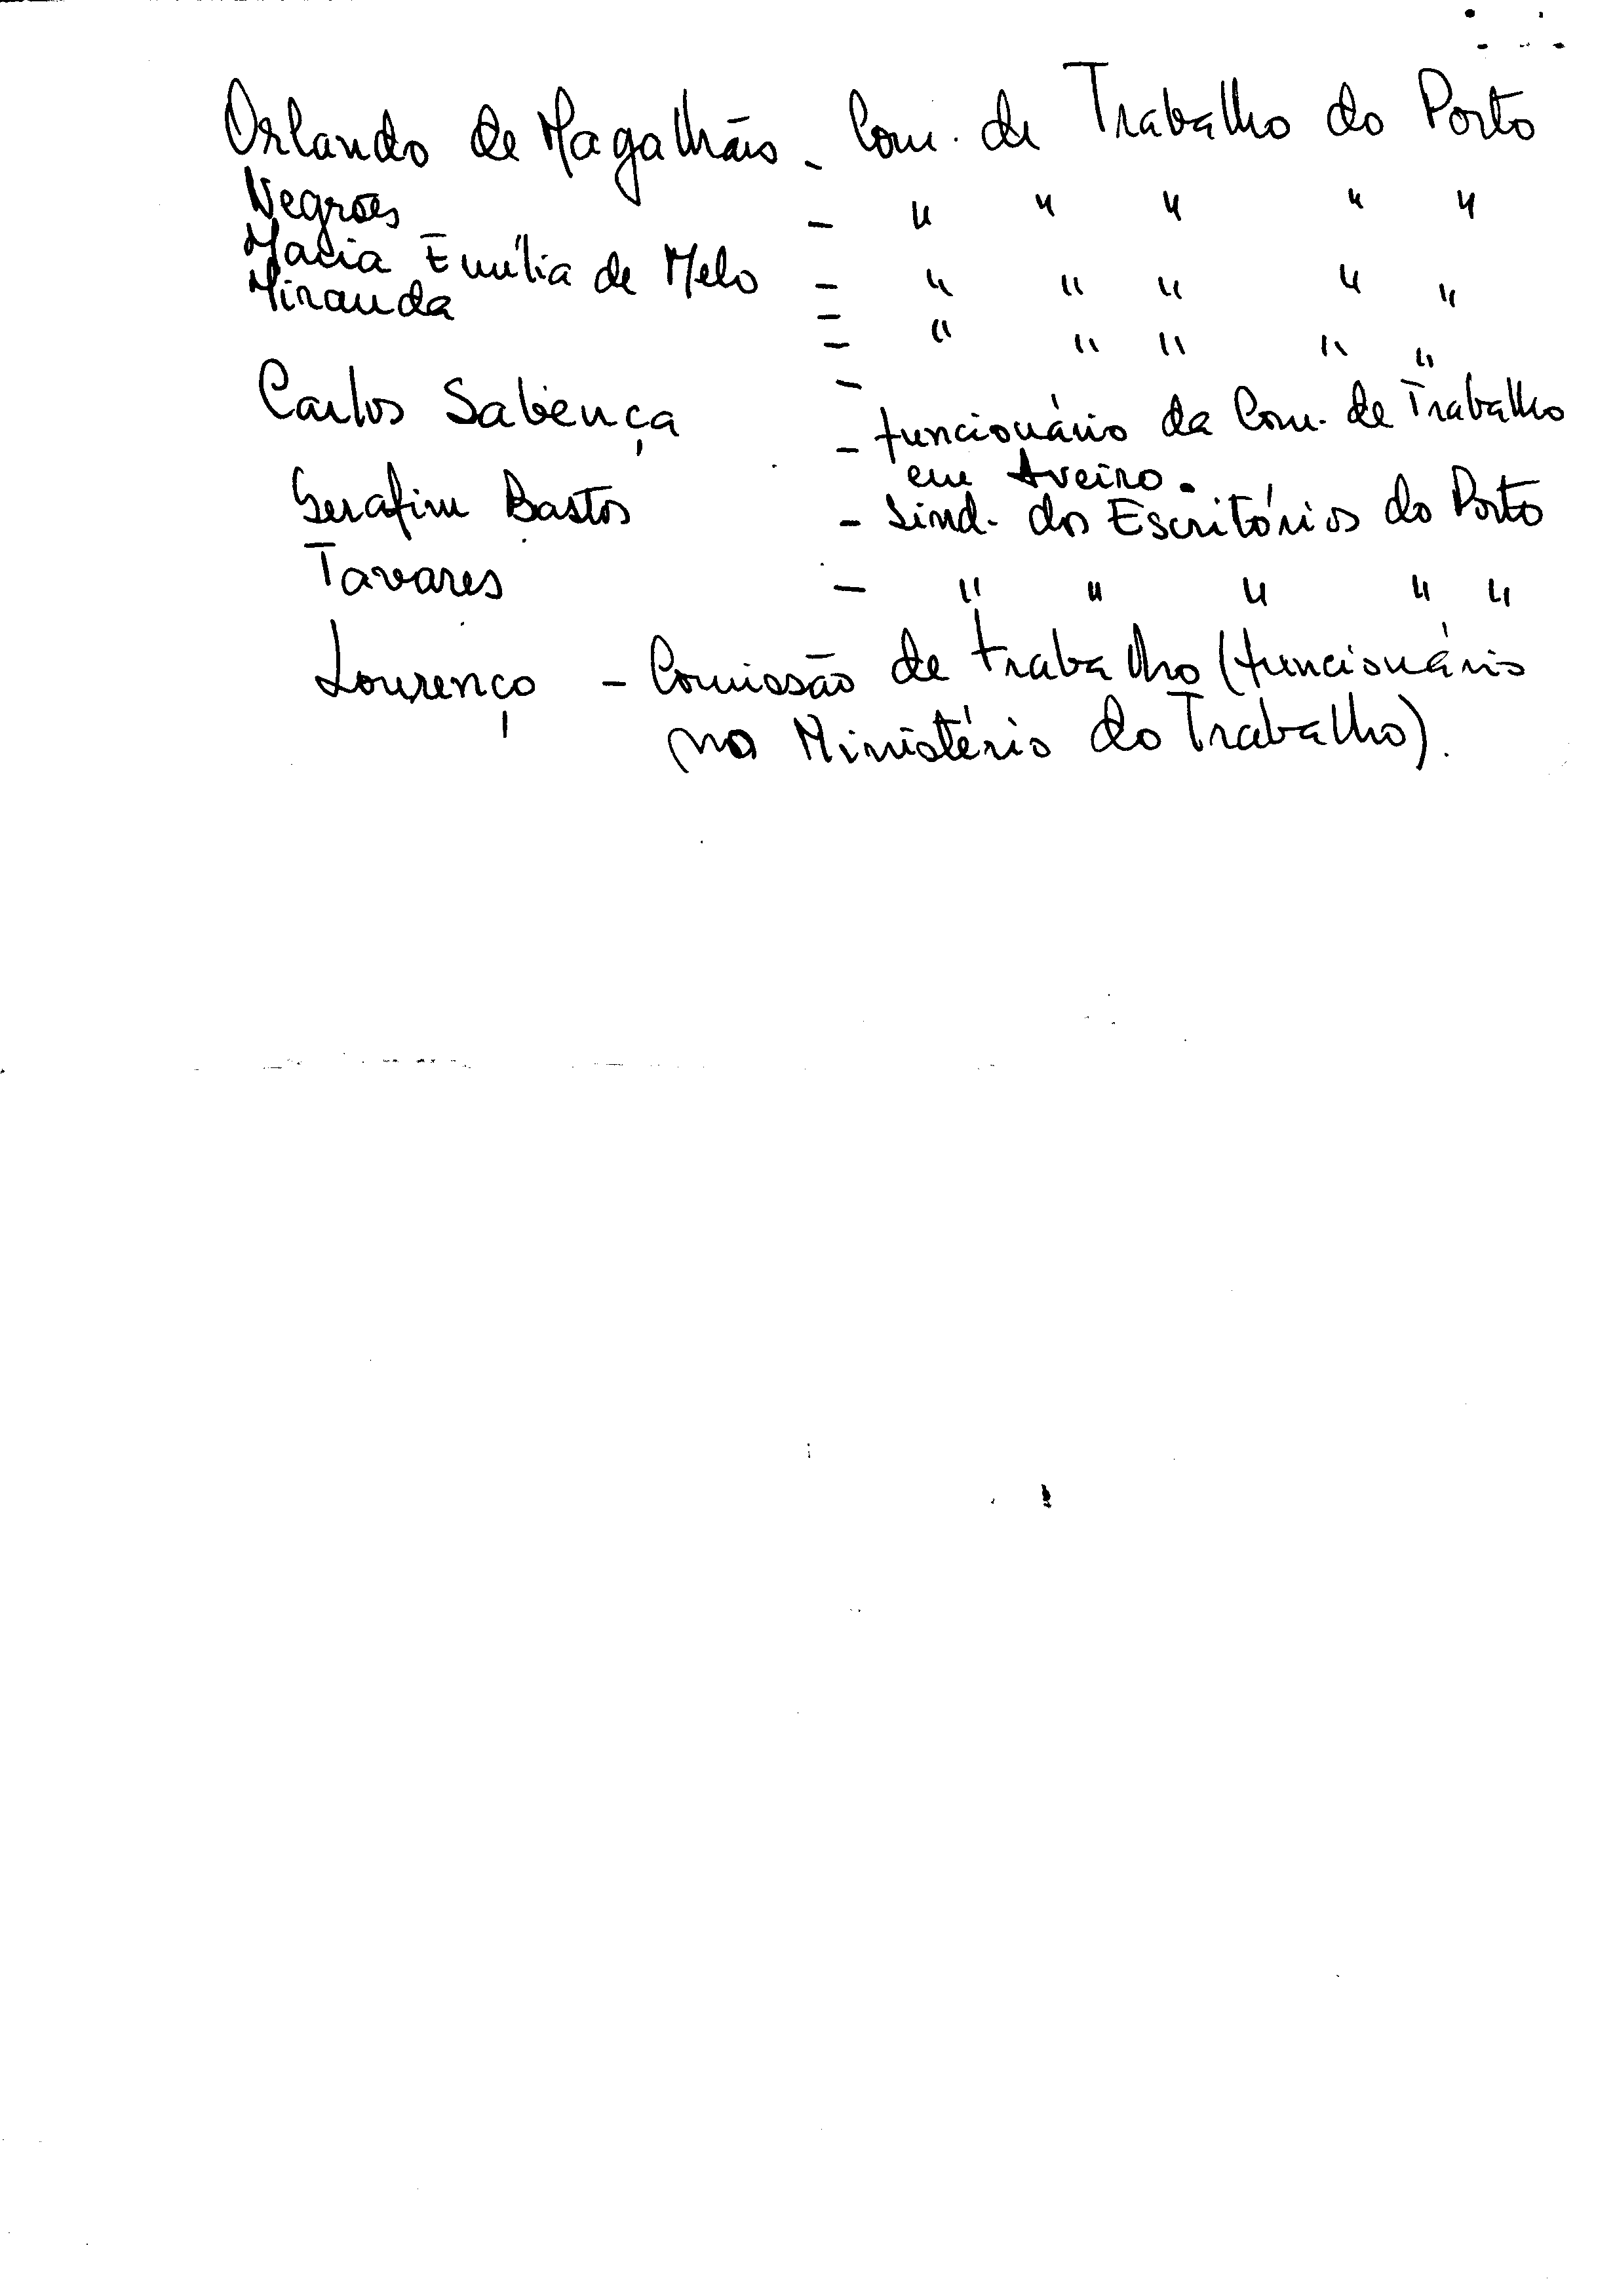 Orlando de Magalhães - Com. de Trabalho do Porto
Negrões - " " " " "
Maria Emília de Melo - " " " " "
Miranda - " " " " "
Carlos Sabença - funcionário da Com. de Trabalho
em Aveiro.
Serafim Bastos - Sind. dos Escritórios do Porto
Tavares - " " " " "
Lourenço - Comissão de trabalho (funcionário
no Ministério do Trabalho).